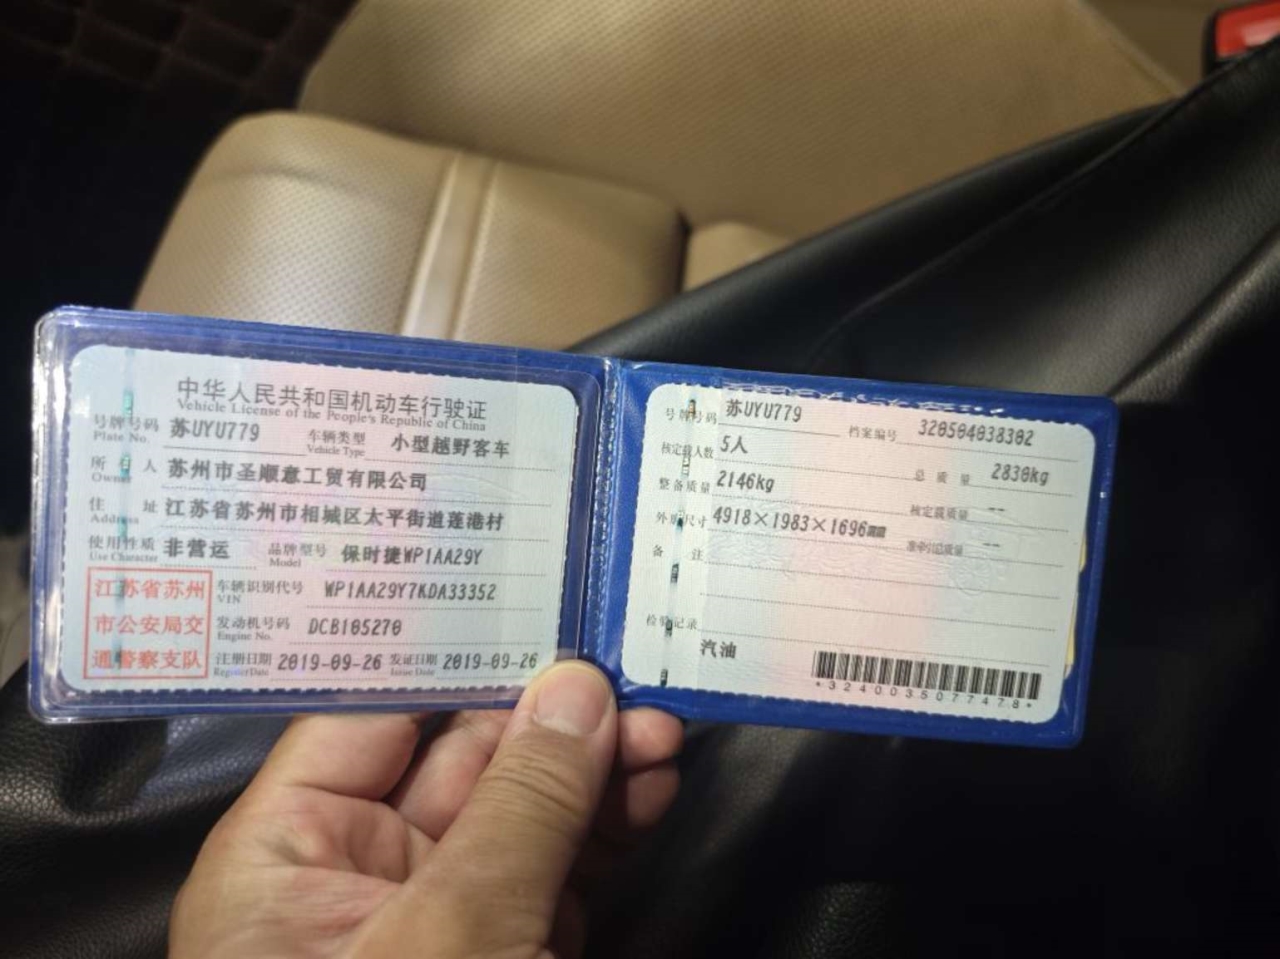 中华人民共和国机动车行驶证
Vehicle License of the People's Republic of China
号牌号码 苏UYU779 车辆类型 小型越野客车
Plate No. Vehicle Type
所有人 苏州市圣顺意工贸有限公司
Owner
住址 江苏省苏州市相城区太平街道莲港村
Address
使用性质 非营运 品牌型号 保时捷WP1AA29Y
Use Character Model
江苏省苏州
市公安局交
通警察支队
车辆识别代号 WP1AA29Y7KDA33352
VIN
发动机号码 DCB105270
Engine No.
注册日期 2019-09-26 发证日期 2019-09-26
Register Date Issue Date
号牌号码 苏UYU779 档案编号 320504038302
核定载人数 5人 总质量 2830kg
整备质量 2146kg 核定载质量 --
外廓尺寸 4918×1983×1696 准牵引总质量 --
备注
检验记录
汽油
*3240035077478*